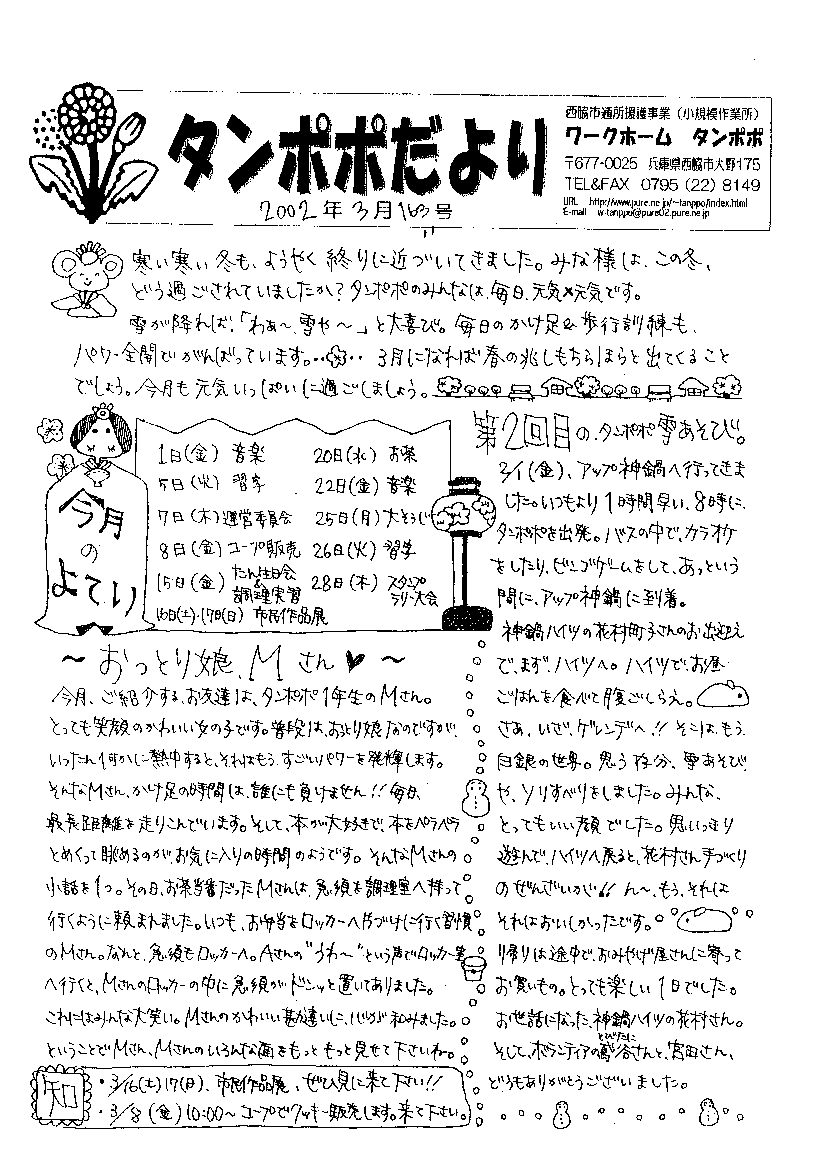 タンポポだより
2002年3月163号
西脇市通所援護事業（小規模作業所）
ワークホーム　タンポポ
〒677-0025　兵庫県西脇市大野175
TEL&FAX　0795（22）8149
URL　http://www.pure.ne.jp/~tanppo/index.html
E-mail　w-tanppo@pure02.pure.ne.jp
寒い寒い冬も、ようやく終りに近づいてきました。みな様は、この冬、
どう過ごされていましたか？タンポポのみんなは、毎日、元気×元気です。
雪が降れば、「わぁ〜、雪や〜」と大喜び。毎日のかけ足&歩行訓練も、
パワー全開でがんばっています。 3月になれば春の兆しもちらほらと出てくること
でしょう。今月も元気いっぱいに過ごしましょう。
今月
の
よてい
1日(金) 音楽
5日(火) 習字
7日(木) 運営委員会
8日(金) コープ販売
15日(金) たん生日会&調理実習
16日(土)・17日(日) 市民作品展
20日(水) お茶
22日(金) 音楽
25日(月) 大そうじ
26日(火) 習字
28日(木) スタンプラリー大会
〜おっとり娘、Mさん♥〜
今月、ご紹介する、お友達は、タンポポ1年生のMさん。
とっても笑顔のかわいい女の子です。普段は、おっとり娘なのですが、
いったん何かに熱中すると、それはもう、すごいパワーを発揮します。
そんなMさん、かけ足の時間は、誰にも負けません!!毎日、
最長距離を走りこんでいます。そして、本が大好きで、本をペラペラ
とめくって眺めるのが、お気に入りの時間のようです。そんなMさんの
小話を1つ。その日、お茶当番だったMさんは、急須を調理室へ持って
行くように頼まれました。いつも、お弁当をロッカーへ片づけに行く習慣
のMさん。なんと、急須もロッカーへ。Aさんの"うわ〜"という声でロッカー室
へ行くと、Mさんのロッカーの中に急須がドンッと置いてありました。
これにはみんな大笑い。Mさんのかわいい勘違いに、心が和みました。
ということでMさん、Mさんのいろんな面をもっともっと見せて下さいね。
知
・3/16(土)17(日)、市民作品展、ぜひ見に来て下さい!!
・3/8(金)10:00〜コープでクッキー販売します。来て下さい。
第2回目の、タンポポ雪あそび。
2/1(金)、アップ神鍋へ行ってきま
した。いつもより1時間早い、8時に、
タンポポを出発。バスの中で、カラオケ
をしたり、ビンゴゲームをして、あっという
間に、アップ神鍋に到着。
神鍋ハイツの花村町子さんのお出迎え
で、まず、ハイツへ。ハイツで、お昼
ごはんを食べて腹ごしらえ。
さあ、いざ、ゲレンデへ!!そこは、もう、
白銀の世界。思う存分、雪あそび
や、ソリすべりをしました。みんな、
とってもいい顔でした。思いっきり
遊んで、ハイツへ戻ると、花村さん手づくり
のぜんざいが!!ん〜、もう、それは
それはおいしかったです。
帰りは途中で、おみやげ屋さんに寄って
お買いもの。とっても楽しい1日でした。
お世話になった、神鍋ハイツの花村さん。
そして、ボランティアの鳶谷さんと、宮田さん、
どうもありがとうございました。